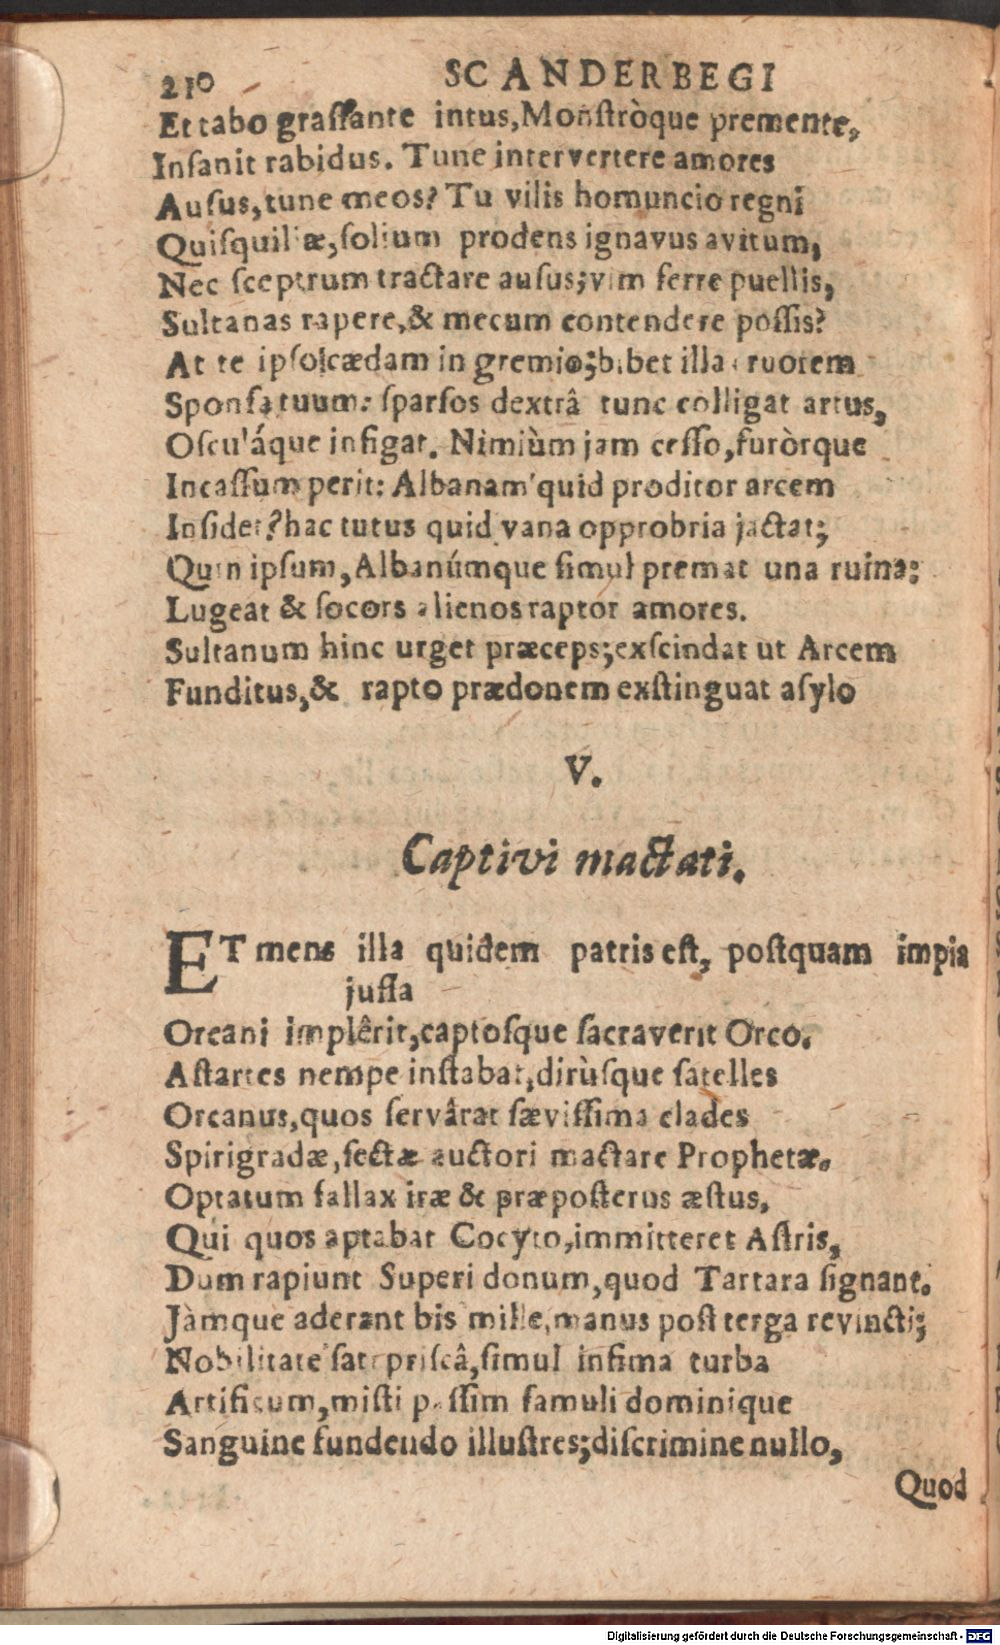 210 SCANDERBEGI
Et tabo graſſante intus, Monſtròque premente,
Inſanit rabidus. Tune intervertere amores
Auſus, tune meos? Tu vilis homuncio regni
Quiſquiliæ, ſolium prodens ignavus avitum,
Nec ſceptrum tractare auſus; vim ferre puellis,
Sultanas rapere, & mecum contendere poſſis?
At te ipſo cædam in gremio; bibet illa cruorem
Sponſa tuum: ſparſos dextrâ tunc colligat artus,
Oſculáque infigat. Nimiùm jam ceſſo, furòrque
Incaſſum perit: Albanam quid proditor arcem
Inſidet? hac tutus quid vana opprobria jactat;
Quin ipſum, Albanúmque ſimul premat una ruina:
Lugeat & ſocors alienos raptor amores.
Sultanum hinc urget præceps; exſcindat ut Arcem
Funditus, & rapto prædonem exſtinguat aſylo
V.
Captivi mactati.
ET mens illa quidem patris eſt, poſtquam impia
juſſa
Orcani implêrit, captoſque ſacraverit Orco.
Aſtartes nempe inſtabat, dirùſque ſatelles
Orcanus, quos ſervârat ſæviſſima clades
Spirigradæ, ſectæ auctori mactare Prophetæ.
Optatum fallax iræ & præpoſterus æſtus,
Qui quos aptabat Cocyto, immitteret Aſtris,
Dum rapiunt Superi donum, quod Tartara ſignant.
Jàmque aderant bis mille, manus poſt terga revincti;
Nobilitate ſati priſcâ, ſimul infima turba
Artificum, miſti paſſim famuli dominique
Sanguine fundendo illuſtres; diſcrimine nullo,
Quod
Digitalisierung gefördert durch die Deutsche Forschungsgemeinschaft - DFG